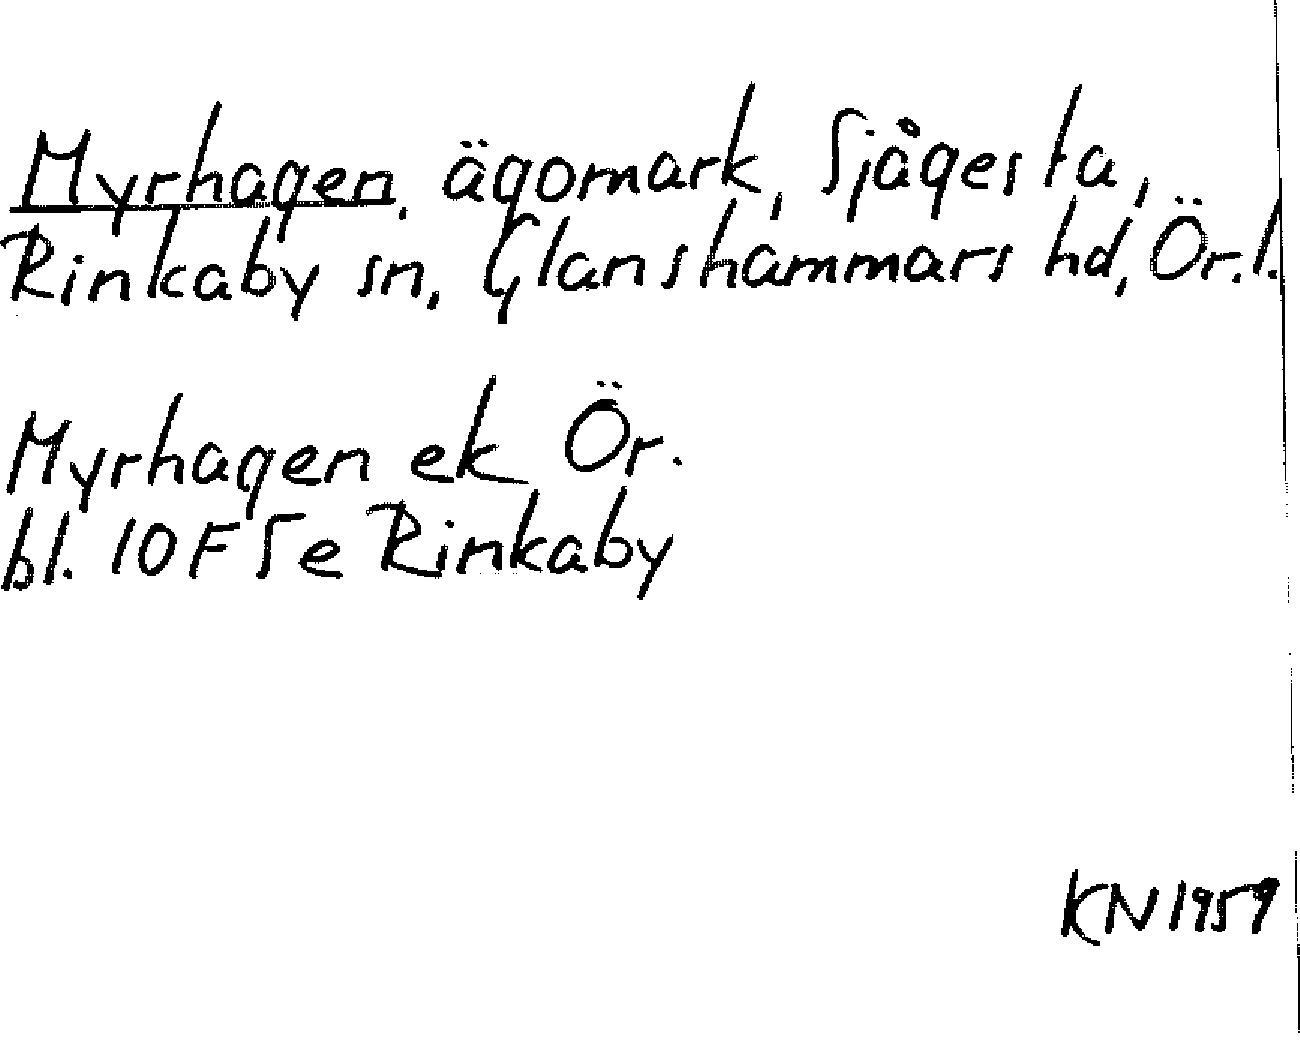 Myrhagen, ägomark, Sjågesta,
Rinkaby sn, Glanshammars hd, Ör. l.
Myrhagen ek Ör.
bl. 10F5e Rinkaby
KN 1959